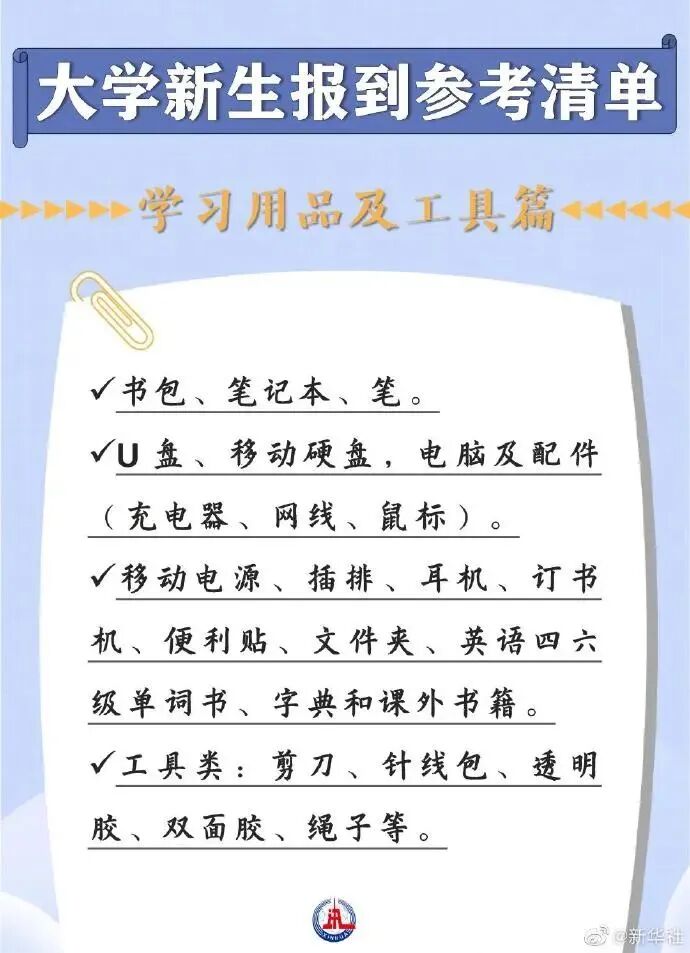 大学新生报到参考清单
学习用品及工具篇
✓书包、笔记本、笔。
✓U盘、移动硬盘，电脑及配件
（充电器、网线、鼠标）。
✓移动电源、插排、耳机、订书
机、便利贴、文件夹、英语四六
级单词书、字典和课外书籍。
✓工具类：剪刀、针线包、透明
胶、双面胶、绳子等。
XINHUA
@新华社